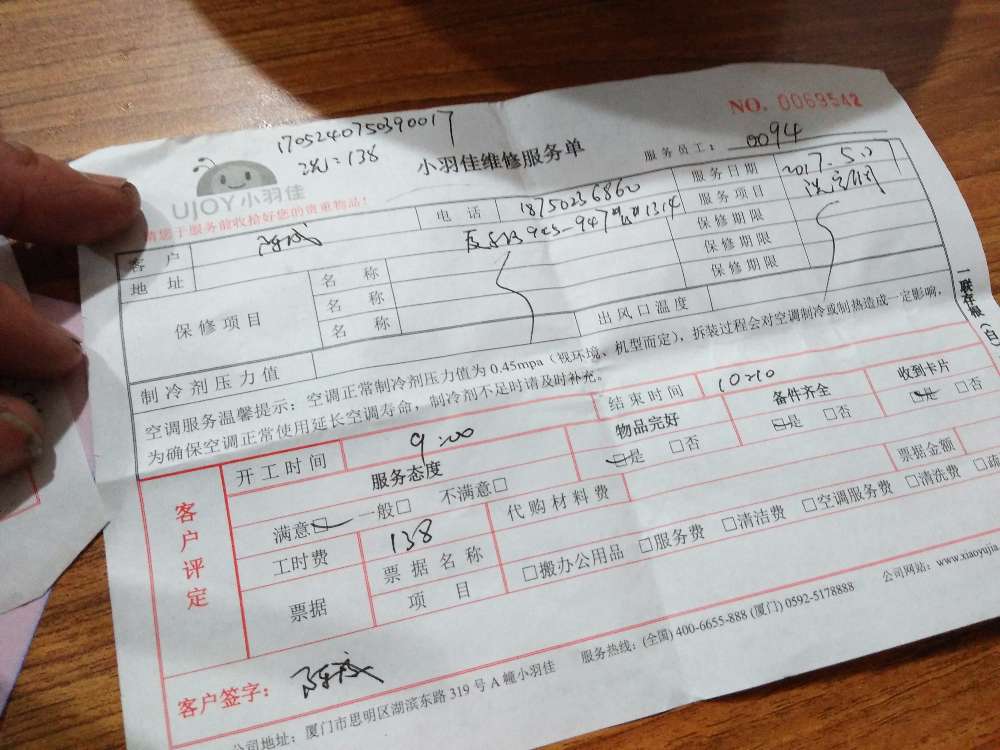 NO. 0069542
170524075039 0017
138
小羽佳维修服务单
服务员工： 0094
UJOY小羽佳
请您于服务前收拾好您的贵重物品！
客户 陈成 电话 18750236860 服务日期
地址 服务项目
保修项目 名称 保修期限
名称 保修期限
名称 保修期限
制冷剂压力值 出风口温度
空调服务温馨提示：空调正常制冷剂压力值为 0.45mpa（视环境、机型而定），拆装过程会对空调制冷或制热造成一定影响，
为确保空调正常使用延长空调寿命，制冷剂不足时请及时补充。
一联存根（白）
客户评定
开工时间 9:00 结束时间 10:10
服务态度 物品完好 备件齐全 收到卡片
满意□ 一般□ 不满意□ □是 □否 □是 □否 □是 □否
工时费 138 代购材料费 票据金额
票据 票据名称 □搬办公用品 □服务费 □清洁费 □空调服务费 □清洗费 □疏
项目
客户签字： 陈成
公司地址：厦门市思明区湖滨东路 319 号 A 幢小羽佳 服务热线：(全国) 400-6655-888 (厦门) 0592-5178888 公司网站：www.xiaoyujia